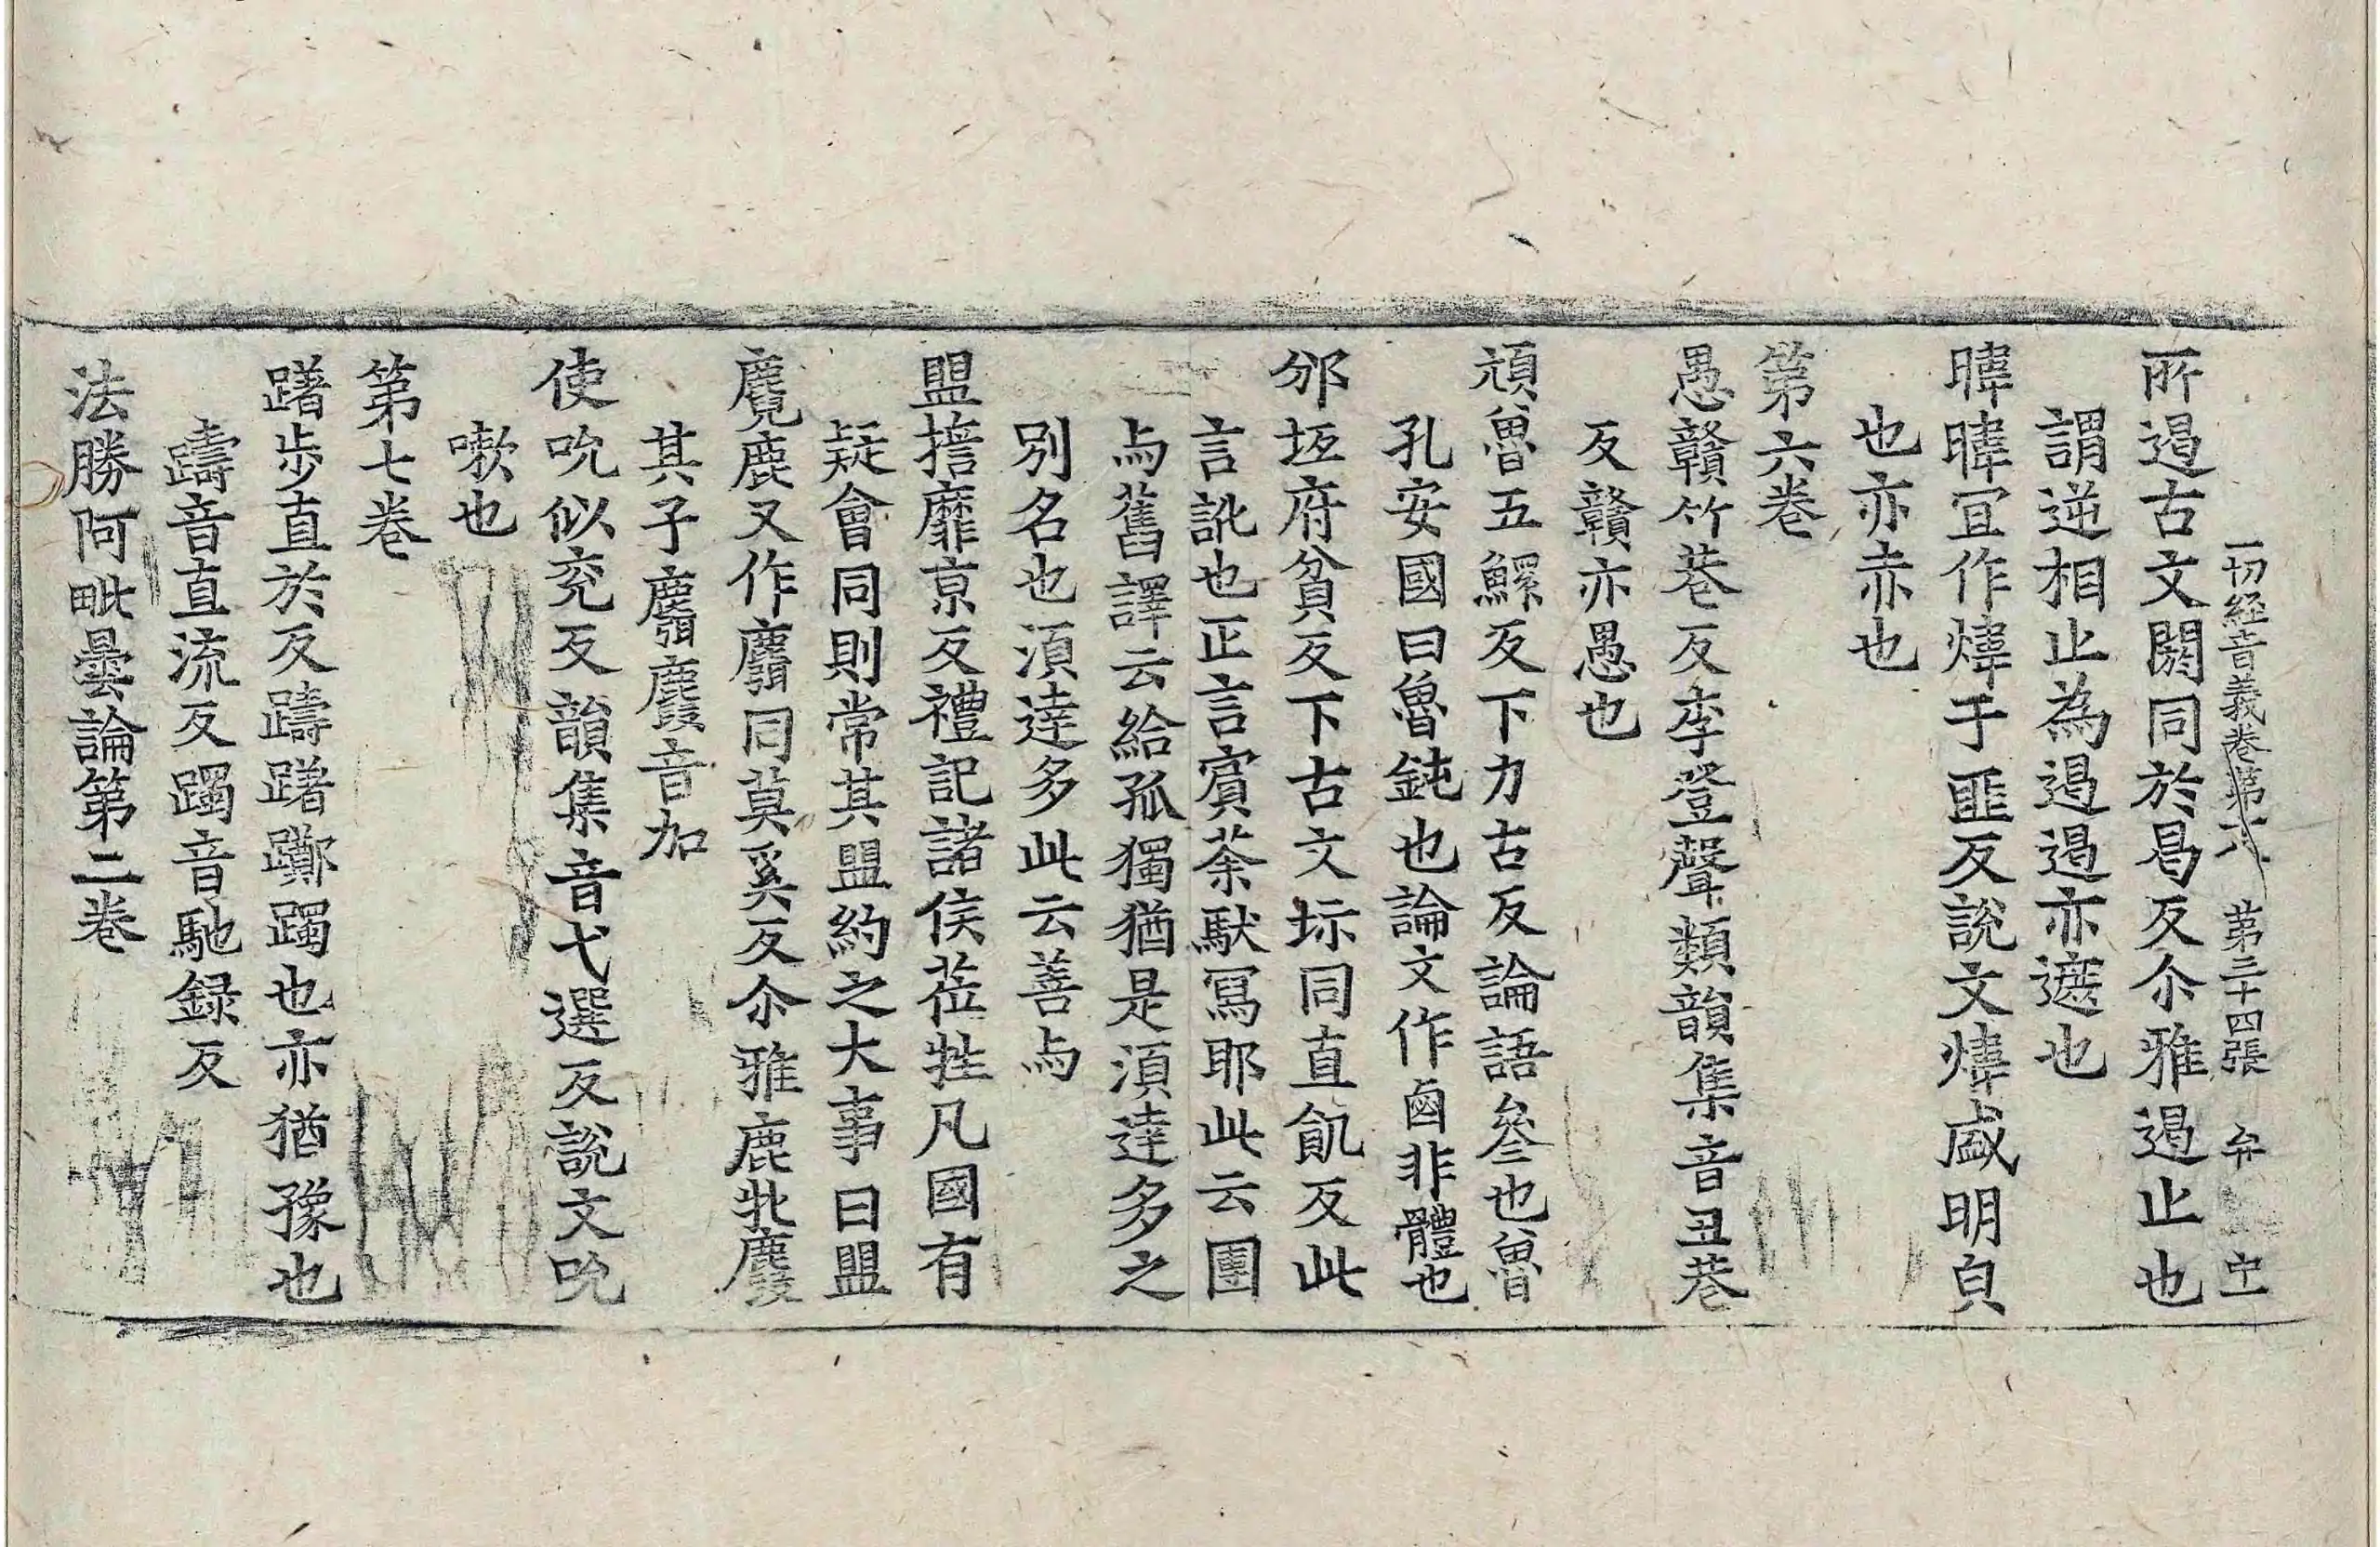 一切経音義卷第六 第三十四張 弁
所遏古文閼同於曷反尒雅遏止也
謂逆相止為遏遏亦遮也
暐暐冝作煒于匪反說文煒盛明皃
也亦赤也
第六卷
愚贛竹巷反李登聲類韻集音丑巷
反贛亦愚也
頑魯五鰥反下力古反論語叅也魯
孔安國曰魯鈍也論文作鹵非體也
邠坻府貧反下古文坁同直飢反此
言訛也正言賓荼馱寫耶此云團
与舊譯云給孤獨猶是湏達多之
別名也湏達多此云善与
盟㨣靡京反禮記諸侯莅牲凡國有
疑會同則常其盟約之大事曰盟
麑鹿又作麛同莫奚反尒雅鹿牝麀
其子麛麚音加
使吮似兖反韻集音弋選反說文吮
嗽也
第七卷
躇步直於反躊躇躑躅也亦猶豫也
躊音直流反躅音馳録反
法勝阿毗曇論第二卷